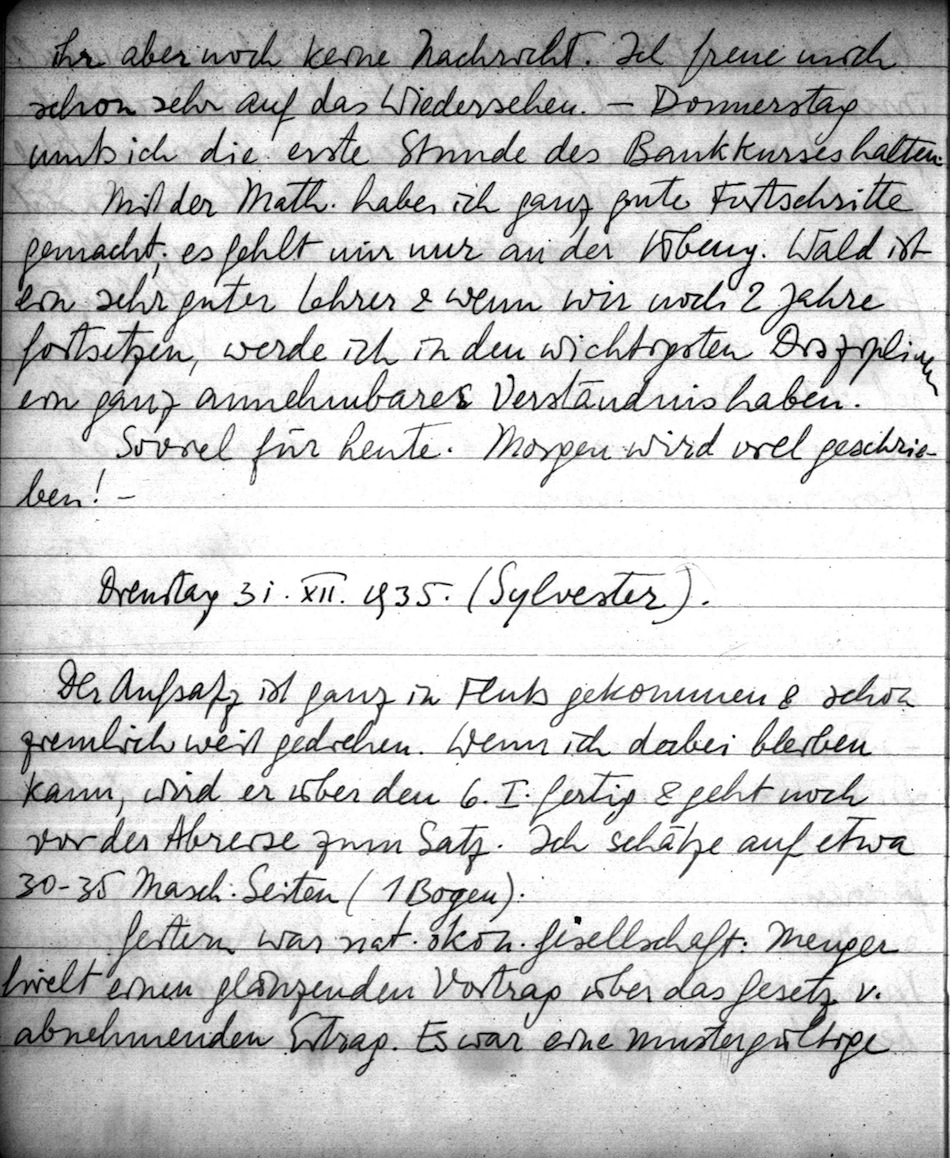 ihr aber noch keine Nachricht. Ich freue mich
schon sehr auf das Wiedersehen. – Donnerstag
muß ich die erste Stunde des Bankkurses halten.
Mit der Math. habe ich ganz gute Fortschritte
gemacht; es fehlt mir nur an der Übung. Wald ist
ein sehr guter Lehrer & wenn wir noch 2 Jahre
fortsetzen, werde ich in den wichtigsten Disziplinen
ein ganz annehmbares Verständnis haben.
Soviel für heute. Morgen wird viel geschrie-
ben! –
Dienstag 31. XII. 1935. (Sylvester).
Der Aufsatz ist ganz in Fluß gekommen & schon
ziemlich weit gediehen. Wenn ich dabei bleiben
kann, wird er über den 6. I. fertig & geht noch
vor der Abreise zum Satz. Ich schätze auf etwa
30-35 Masch. Seiten (1 Bogen).
Gestern war nat. ökon. Gesellschaft. Menger
hielt einen glänzenden Vortrag über das Gesetz v.
abnehmenden Ertrag. Es war eine mustergültige